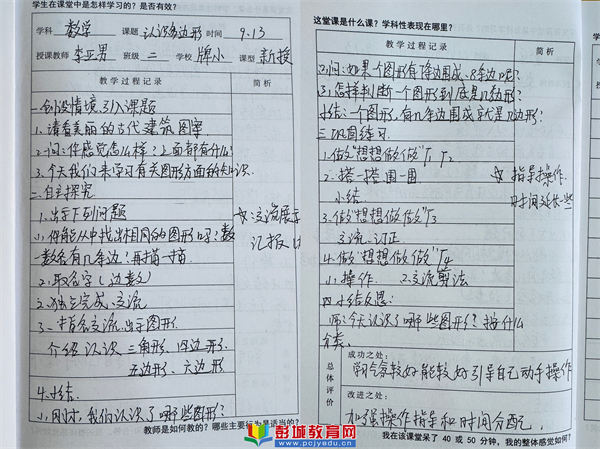 学生在课堂中是怎样学习的？是否有效？
学科 数学 课题 认识多边形 时间 9.13
授课教师 李亚男 班级 二 学校 牌小 课型 新授
教学过程记录 简析
一.创设情境,引入课题
1.请看美丽的古代建筑图案
2.问:你感觉怎么样?上面都有什么?
3.今天我们来学习有关图形方面的知识.
二.自主探究
1.出示下列问题
(1)你能从中找出相同的图形吗?数
一数各有几条边!再指一指
(2)取名字(边数)
2.独立完成、交流
3.指名交流.出示图形.
介绍认识 三角形、四边形、
五边形、六边形
4.小结
(1)刚才,我们认识了哪些图形?
☆交流展示
汇报
教师是如何教的？哪些主要行为是适当的？
这堂课是什么课？学科性表现在哪里？
教学过程记录 简析
(2)问:如果个图形有7条边围成、8条边呢?
(3)怎样判断一个图形到底是几边形?
小结:一个图形.有几条边围成就是几边形?
三.巩固练习
1.做"想想做做"T1 T2
2.搭一搭 围一围
小结
3.做"想想做做"T3
交流.订正
4.做"想想做做"T4
(1)操作. (2)交流剪法
四.小结反思:
师:今天认识了哪些图形?按什么
分类.
☆ 指导操作.
时间延长些
总体评价
成功之处：
学的较好能较好引导自己动手操作
改进之处：
加强操作指导和时间分配.
我在该课堂呆了 40 或 50 分钟，我的整体感觉如何？
彭城教育网
www.pcjyedu.cn